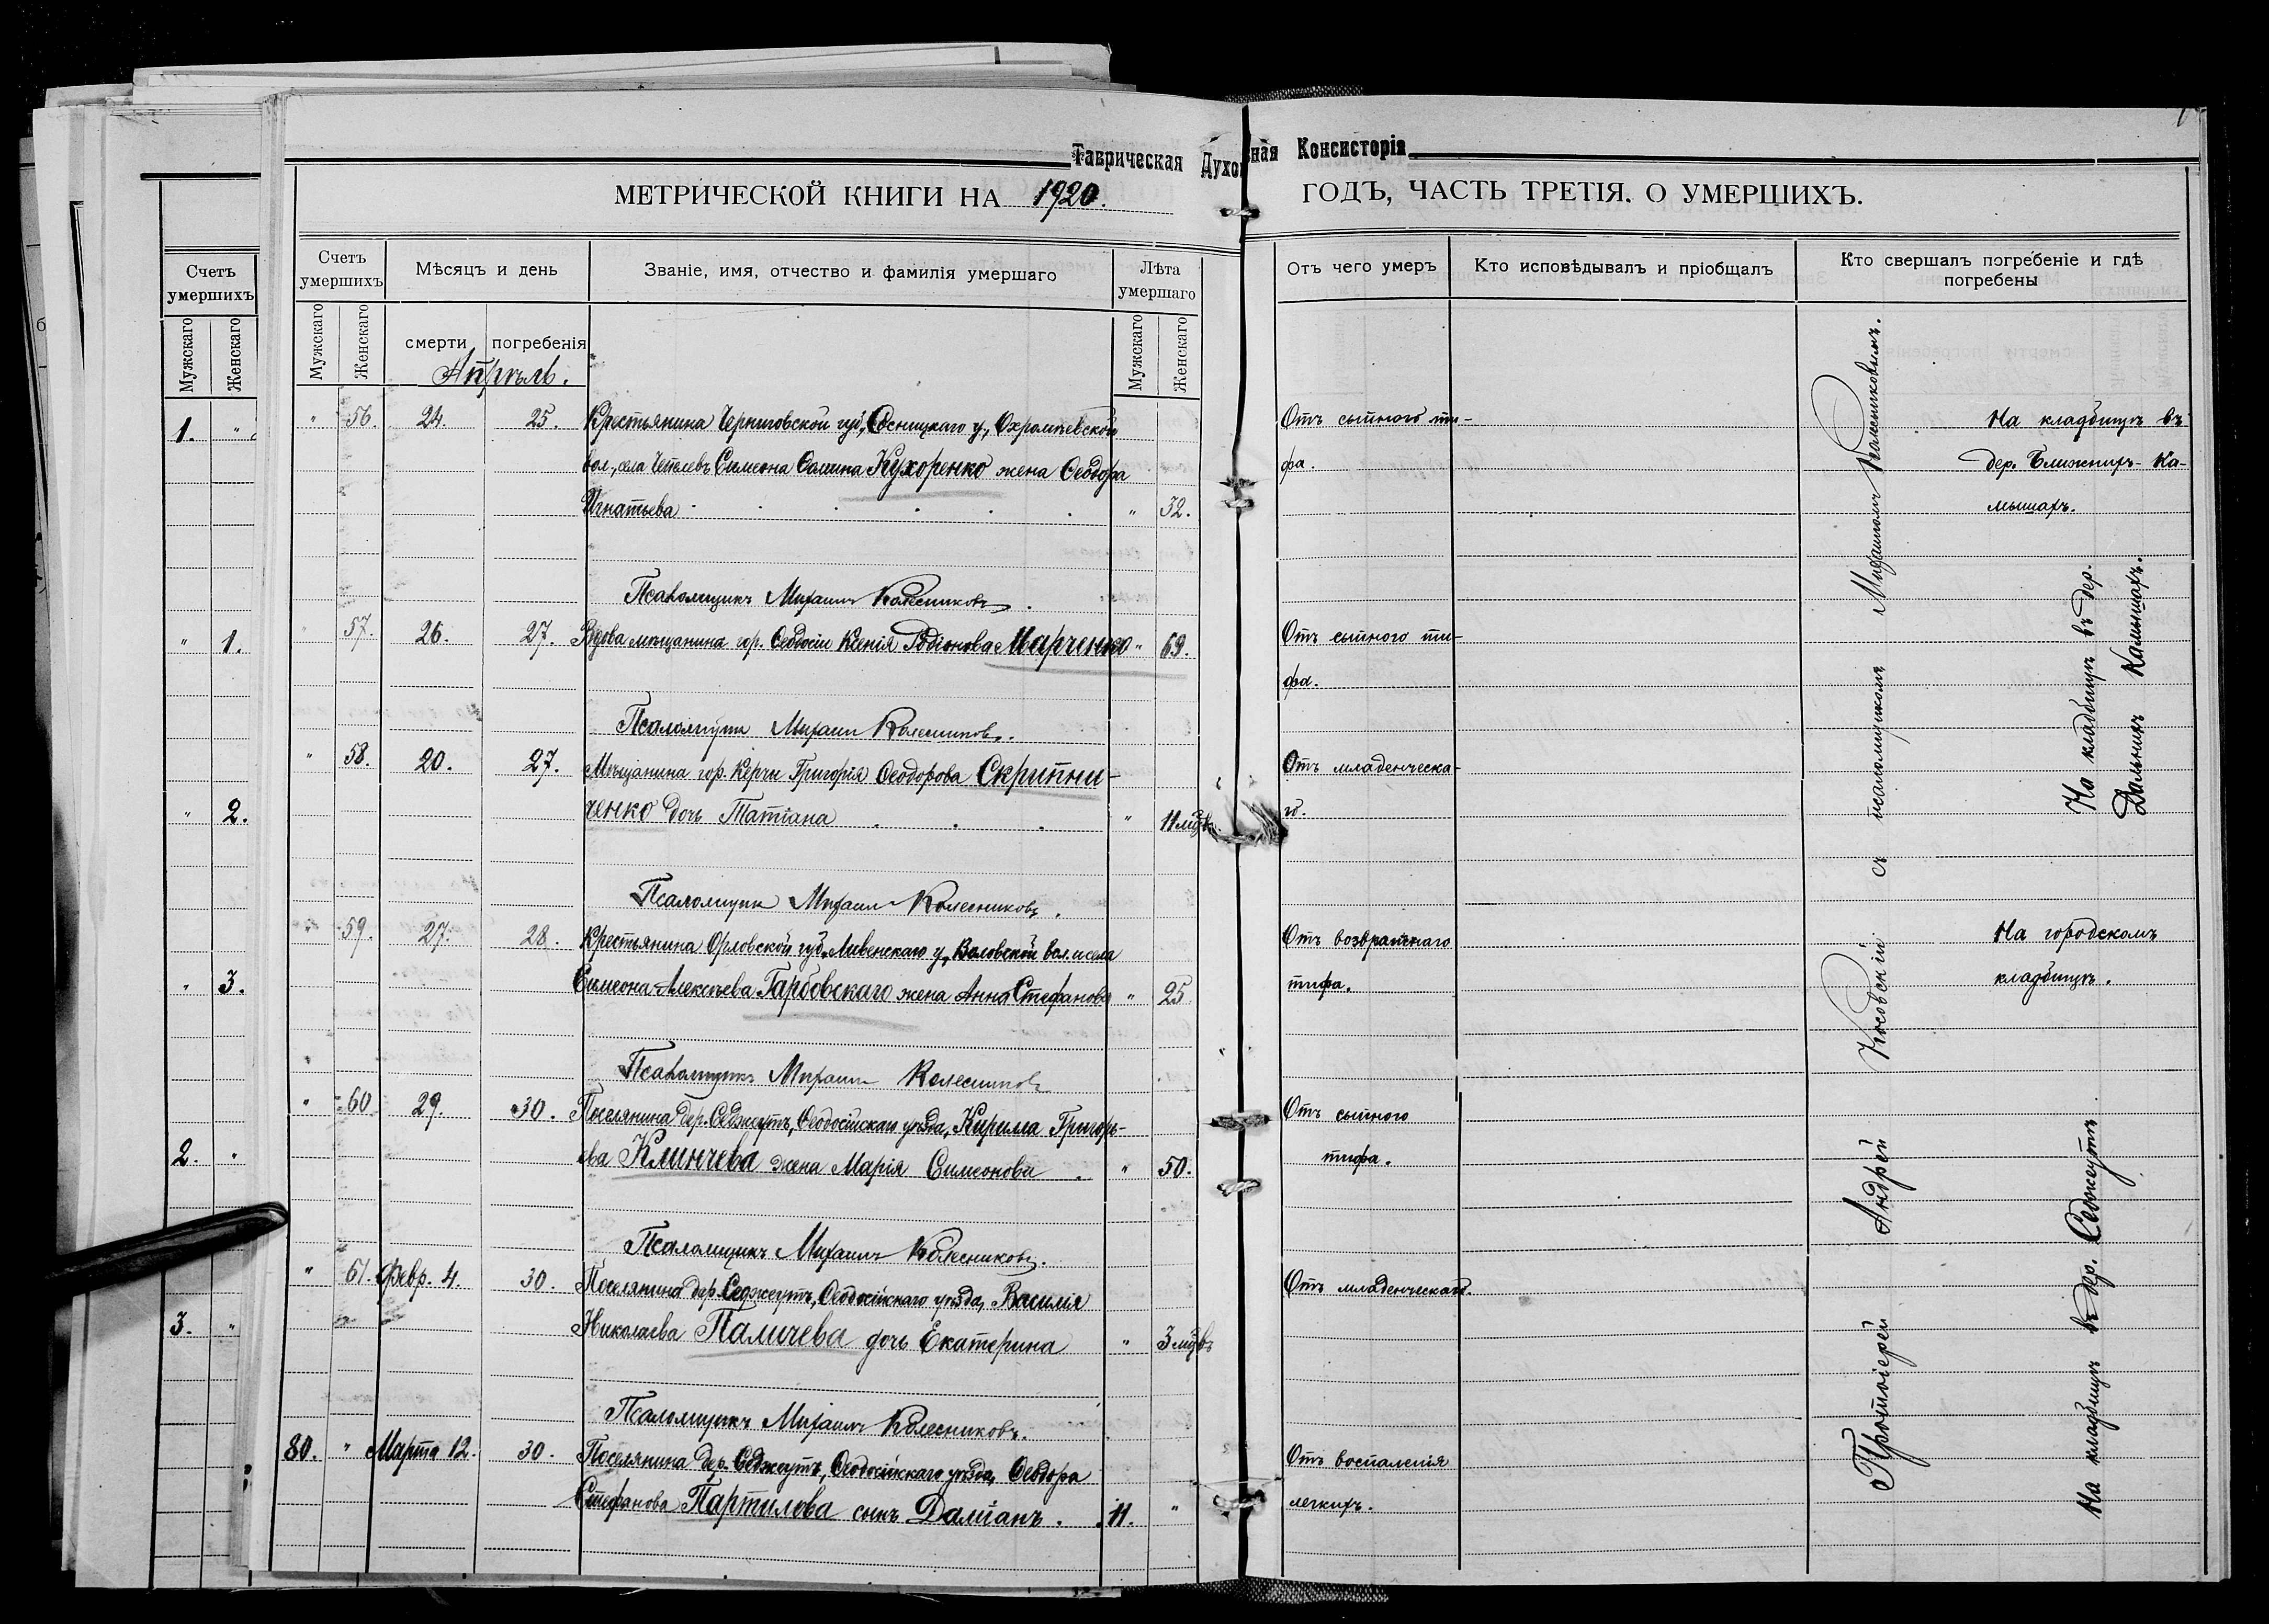 Таврическая Духовная Консисторія
МЕТРИЧЕСКОЙ КНИГИ НА 1920. ГОДЪ, ЧАСТЬ ТРЕТІЯ. О УМЕРШИХЪ.
Счетъ умершихъ
Мужскаго
Женскаго
1. "
" 1.
" 2.
" 3.
2. "
3. "
Счетъ умершихъ
Мѣсяцъ и день
Званіе, имя, отчество и фамилія умершаго
Лѣта умершаго
Отъ чего умеръ
Кто исповѣдывалъ и пріобщалъ
Кто свершалъ погребеніе и гдѣ погребены
Мужскаго
Женскаго
смерти
погребенія
Мужскаго
Женскаго
Апрѣль.
" 56. 24. 25. Крестьянина Черниговской губ., Сосницкаго у., Охрамѣевской Отъ сыпного ти- На кладбищѣ въ
вол., села Симеона Кухоренко жена Ѳеодора фа. дер. Ближнихъ-Ка-
Игнатьева " 32. мышахъ.
Псаломщикъ Михаилъ Колесниковъ.
" 57. 26. 27. Вдова мѣщанина гор. Ѳеодосіи Ксенія Родіонова Марченко " 69. Отъ сыпного ти-
фа.
Псаломщикъ Михаилъ Колесниковъ.
На кладбищѣ въ дер.
Дальнихъ Камышахъ.
" 58. 20. 27. Мѣщанина гор. Керчи Григорія Ѳеодорова Скрипни- Отъ младенческа-
ченко дочь Татіана " 11 мцв. го.
Псаломщикъ Михаилъ Колесниковъ.
" 59. 27. 28. Крестьянина Орловской губ., Ливенскаго у., Воловской вол. и села Отъ возвратнаго На городскомъ
Симеона Алексѣева Гарбовскаго жена Анна Стефанова " 25. тифа. кладбищѣ.
Псаломщикъ Михаилъ Колесниковъ
" 60. 29. 30. Поселянина дер. Седжеутъ, Ѳеодосійскаго уѣзда, Кирилла Григорь- Отъ сыпного
ева Клинчева жена Марія Симеонова " 50. тифа.
Псаломщикъ Михаилъ Колесниковъ.
" 61. Февр. 4. 30. Поселянина дер. Седжеутъ, Ѳеодосійскаго уѣзда, Василія Отъ младенческаго.
Николаева Паличева дочь Екатерина " 3 мцвъ
Псаломщикъ Михаилъ Колесниковъ.
80. " Марта 12. 30. Поселянина дер. Седжеутъ, Ѳеодосійскаго уѣзда, Ѳеодора Отъ воспаленія
Стефанова Партилова сынъ Даміанъ. 11. " легкихъ.
Протоіерей Андрей Косовскій съ псаломщикомъ Михаиломъ Колесниковымъ.
На кладбищѣ въ дер. Седжеутъ.